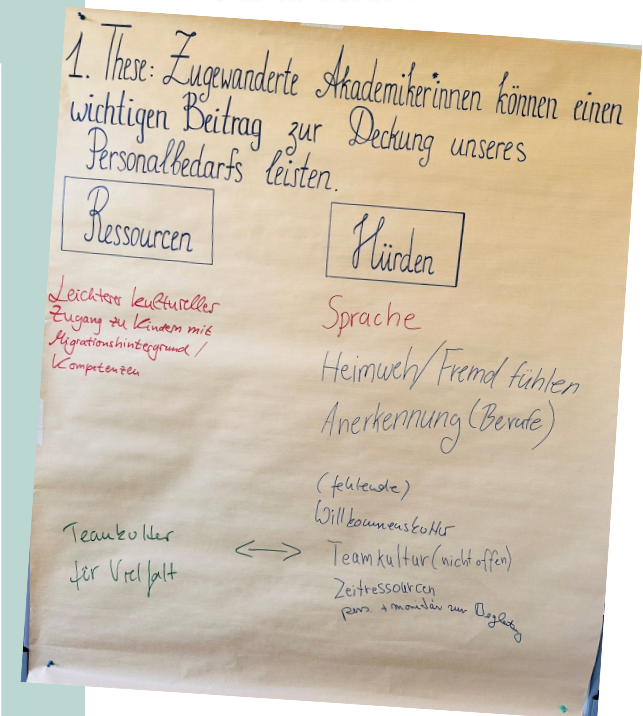 1. These: Zugewanderte Akademiker*innen können einen
wichtigen Beitrag zur Deckung unseres
Personalbedarfs leisten.
Ressourcen
Leichterer kultureller
Zugang zu Kindern mit
Migrationshintergrund/
Kompetenzen
Teamkultur
für Vielfalt
Hürden
Sprache
Heimweh/Fremd fühlen
Anerkennung (Berufe)
(fehlende)
Willkommenskultur
Teamkultur (nicht offen)
Zeitressourcen
pers. + monetär zur Begleitung